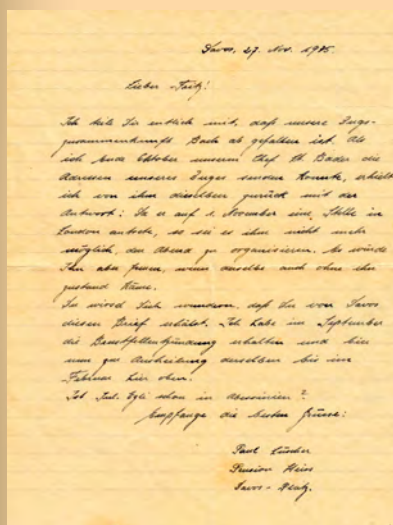 Davos, 27. Nov. 1935.
Lieber Fritz!
Ich teile Dir mit, daß unsere Zugs-
zusammenkunft Bach ab gefallen ist. Als
ich Ende Oktober unserem Chef Th. Bader die
Adressen unseres Zuges senden konnte, erhielt
ich von ihm dieselben zurück mit der
Antwort: Da er auf 1. November eine Stelle in
London antrete, so sei es ihm nicht mehr
möglich, den Abend zu organisieren. Es würde
ihn aber freuen, wenn derselbe auch ohne ihn
zustand käme.
Du wirst Dich wundern, daß Du von Davos
diesen Brief erhältst. Ich habe im September
die erhalten und bin
nun zur Ausheilung derselben bis im
Februar hier oben.
Ist Jul. Egli schon in Abessinien?
Empfange die besten Grüsse:
Paul Lüscher
Pension Heiss
Davos-Platz.